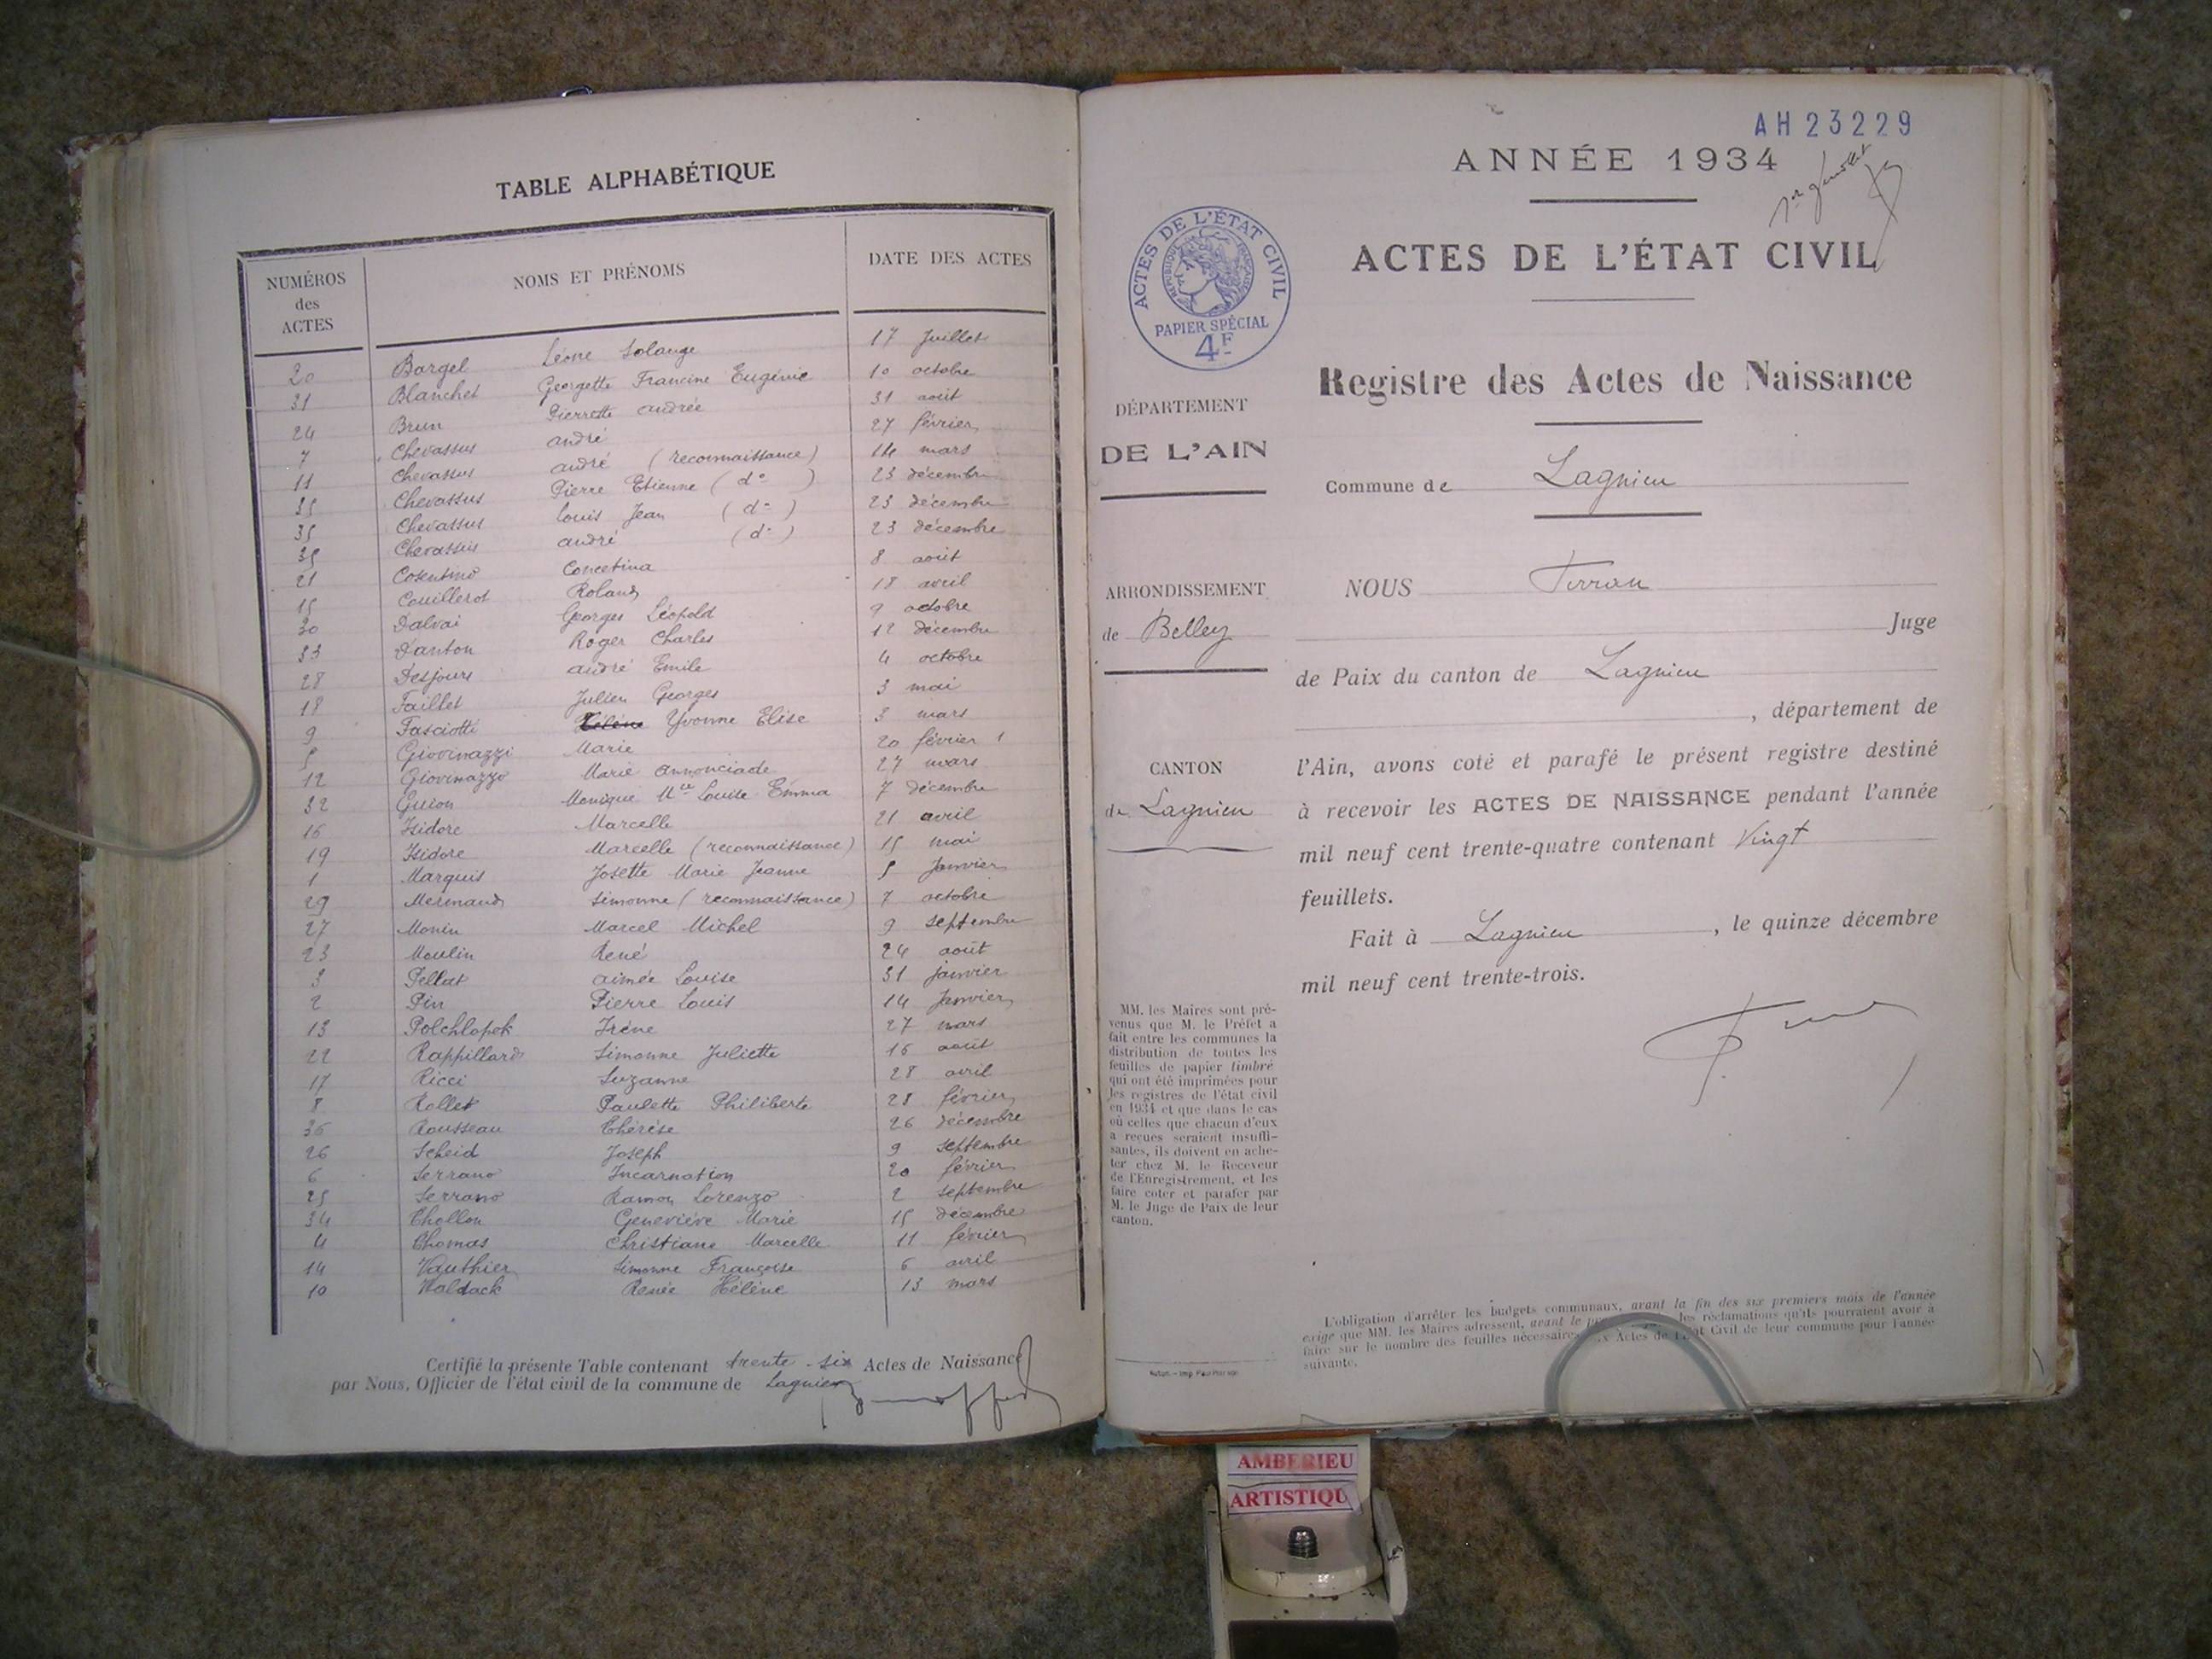 TABLE ALPHABÉTIQUE
NUMÉROS
des
ACTES
NOMS ET PRÉNOMS
DATE DES ACTES
20 Bargel Léone Solange 17 Juillet
31 Blanchet Georgette Francine Eugénie 10 octobre
24 Brun Pierrette andrée 31 août
7 Chevassus andré 27 février
11 Chevassus andré (reconnaissance) 14 mars
35 Chevassus Pierre Etienne (do) 23 décembre
35 Chevassus Louis Jean (do) 23 décembre
35 Chevassus andré (do) 23 décembre
21 Cosentino Concetina 8 août
15 Couillerot Roland 18 avril
30 Dalvai Georges Léopold 9 octobre
33 Danton Roger Charles 12 décembre
28 Desjours andré Emile 4 octobre
18 Faillet Julien Georges 3 mai
9 Fasciotti Yvonne Elise 3 mars
5 Giovinazzi Marie 20 février
12 Giovinazzo Marie annonciade 27 mars
32 Guion Monique Mie Louise Emma 7 décembre
16 Isidore Marcelle 21 avril
19 Isidore Marcelle (reconnaissance) 15 mai
1 Marquis Josette Marie Jeanne 5 Janvier
29 Mermand Simonne (reconnaissance) 7 octobre
27 Monin Marcel Michel 9 septembre
23 Moulin René 24 août
3 Pellat aimée Louise 31 janvier
2 Pin Pierre Louis 14 Janvier
13 Polchlopek Irène 27 mars
22 Rappillard Simonne Juliette 16 août
17 Ricci Suzanne 28 avril
8 Rollet Paulette Philiberte 28 février
36 Rousseau Thérèse 26 décembre
26 Scheid Joseph 9 septembre
6 Serrano Incarnation 20 février
25 Serrano Ramon Lorenzo 2 septembre
34 Thollon Geneviève Marie 15 décembre
4 Thomas Christiane Marcelle 11 février
14 Vauthier Simonne Françoise 6 avril
10 Waldack Renée Hélène 13 mars
Certifié la présente Table contenant trente-six Actes de Naissance
par Nous, Officier de l'état civil de la commune de Lagnieu
AH 23229
ANNÉE 1934
ACTES DE L'ÉTAT CIVIL
ACTES DE L'ÉTAT CIVIL
RÉPUBLIQUE FRANÇAISE
PAPIER SPÉCIAL
4F
Registre des Actes de Naissance
DÉPARTEMENT
DE L'AIN
Commune de Lagnieu
ARRONDISSEMENT
de Belley
CANTON
de Lagnieu
NOUS
Juge
de Paix du canton de Lagnieu
, département de
l'Ain, avons coté et parafé le présent registre destiné
à recevoir les ACTES DE NAISSANCE pendant l'année
mil neuf cent trente-quatre contenant Vingt
feuillets.
Fait à Lagnieu, le quinze décembre
mil neuf cent trente-trois.
MM. les Maires sont pré-
venus que M. le Préfet a
fait entre les communes la
distribution de toutes les
feuilles de papier timbré
qui ont été imprimées pour
les registres de l'état civil
en 1934 et que dans le cas
où celles que chacun d'eux
a reçues seraient insuffi-
santes, ils doivent en ache-
ter chez M. le Receveur
de l'Enregistrement, et les
faire coter et parafer par
M. le Juge de Paix de leur
canton.
L'obligation d'arrêter les budgets communaux, avant la fin des six premiers mois de l'année
exige que MM. les Maires adressent, avant le les réclamations qu'ils pourraient avoir à
faire sur le nombre des feuilles nécessaires Actes de l'État Civil de leur commune pour l'année
suivante.
AMBERIEU
ARTISTIQU